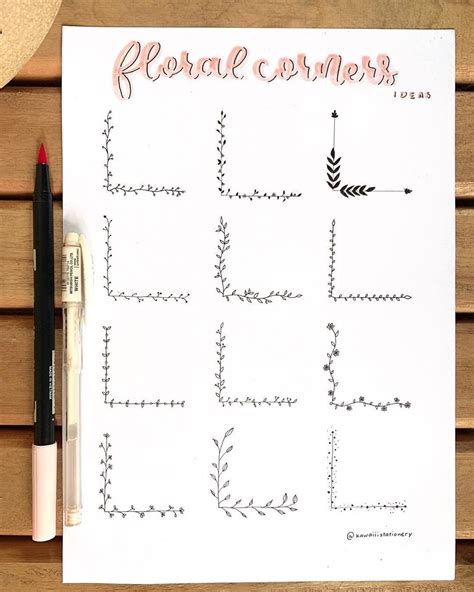 floral corners
IDEAS
WHITE
@xawaii.stationery